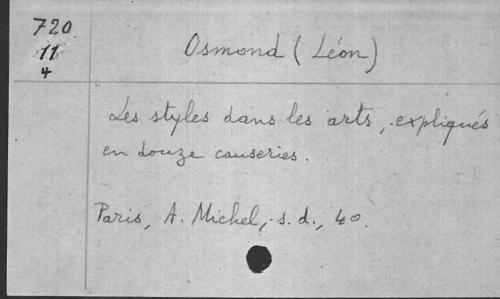 720
11
4
Osmond (Léon)
Les styles dans les arts, expliqués
en douze causeries.
Paris, A. Michel, s.d., 4o.